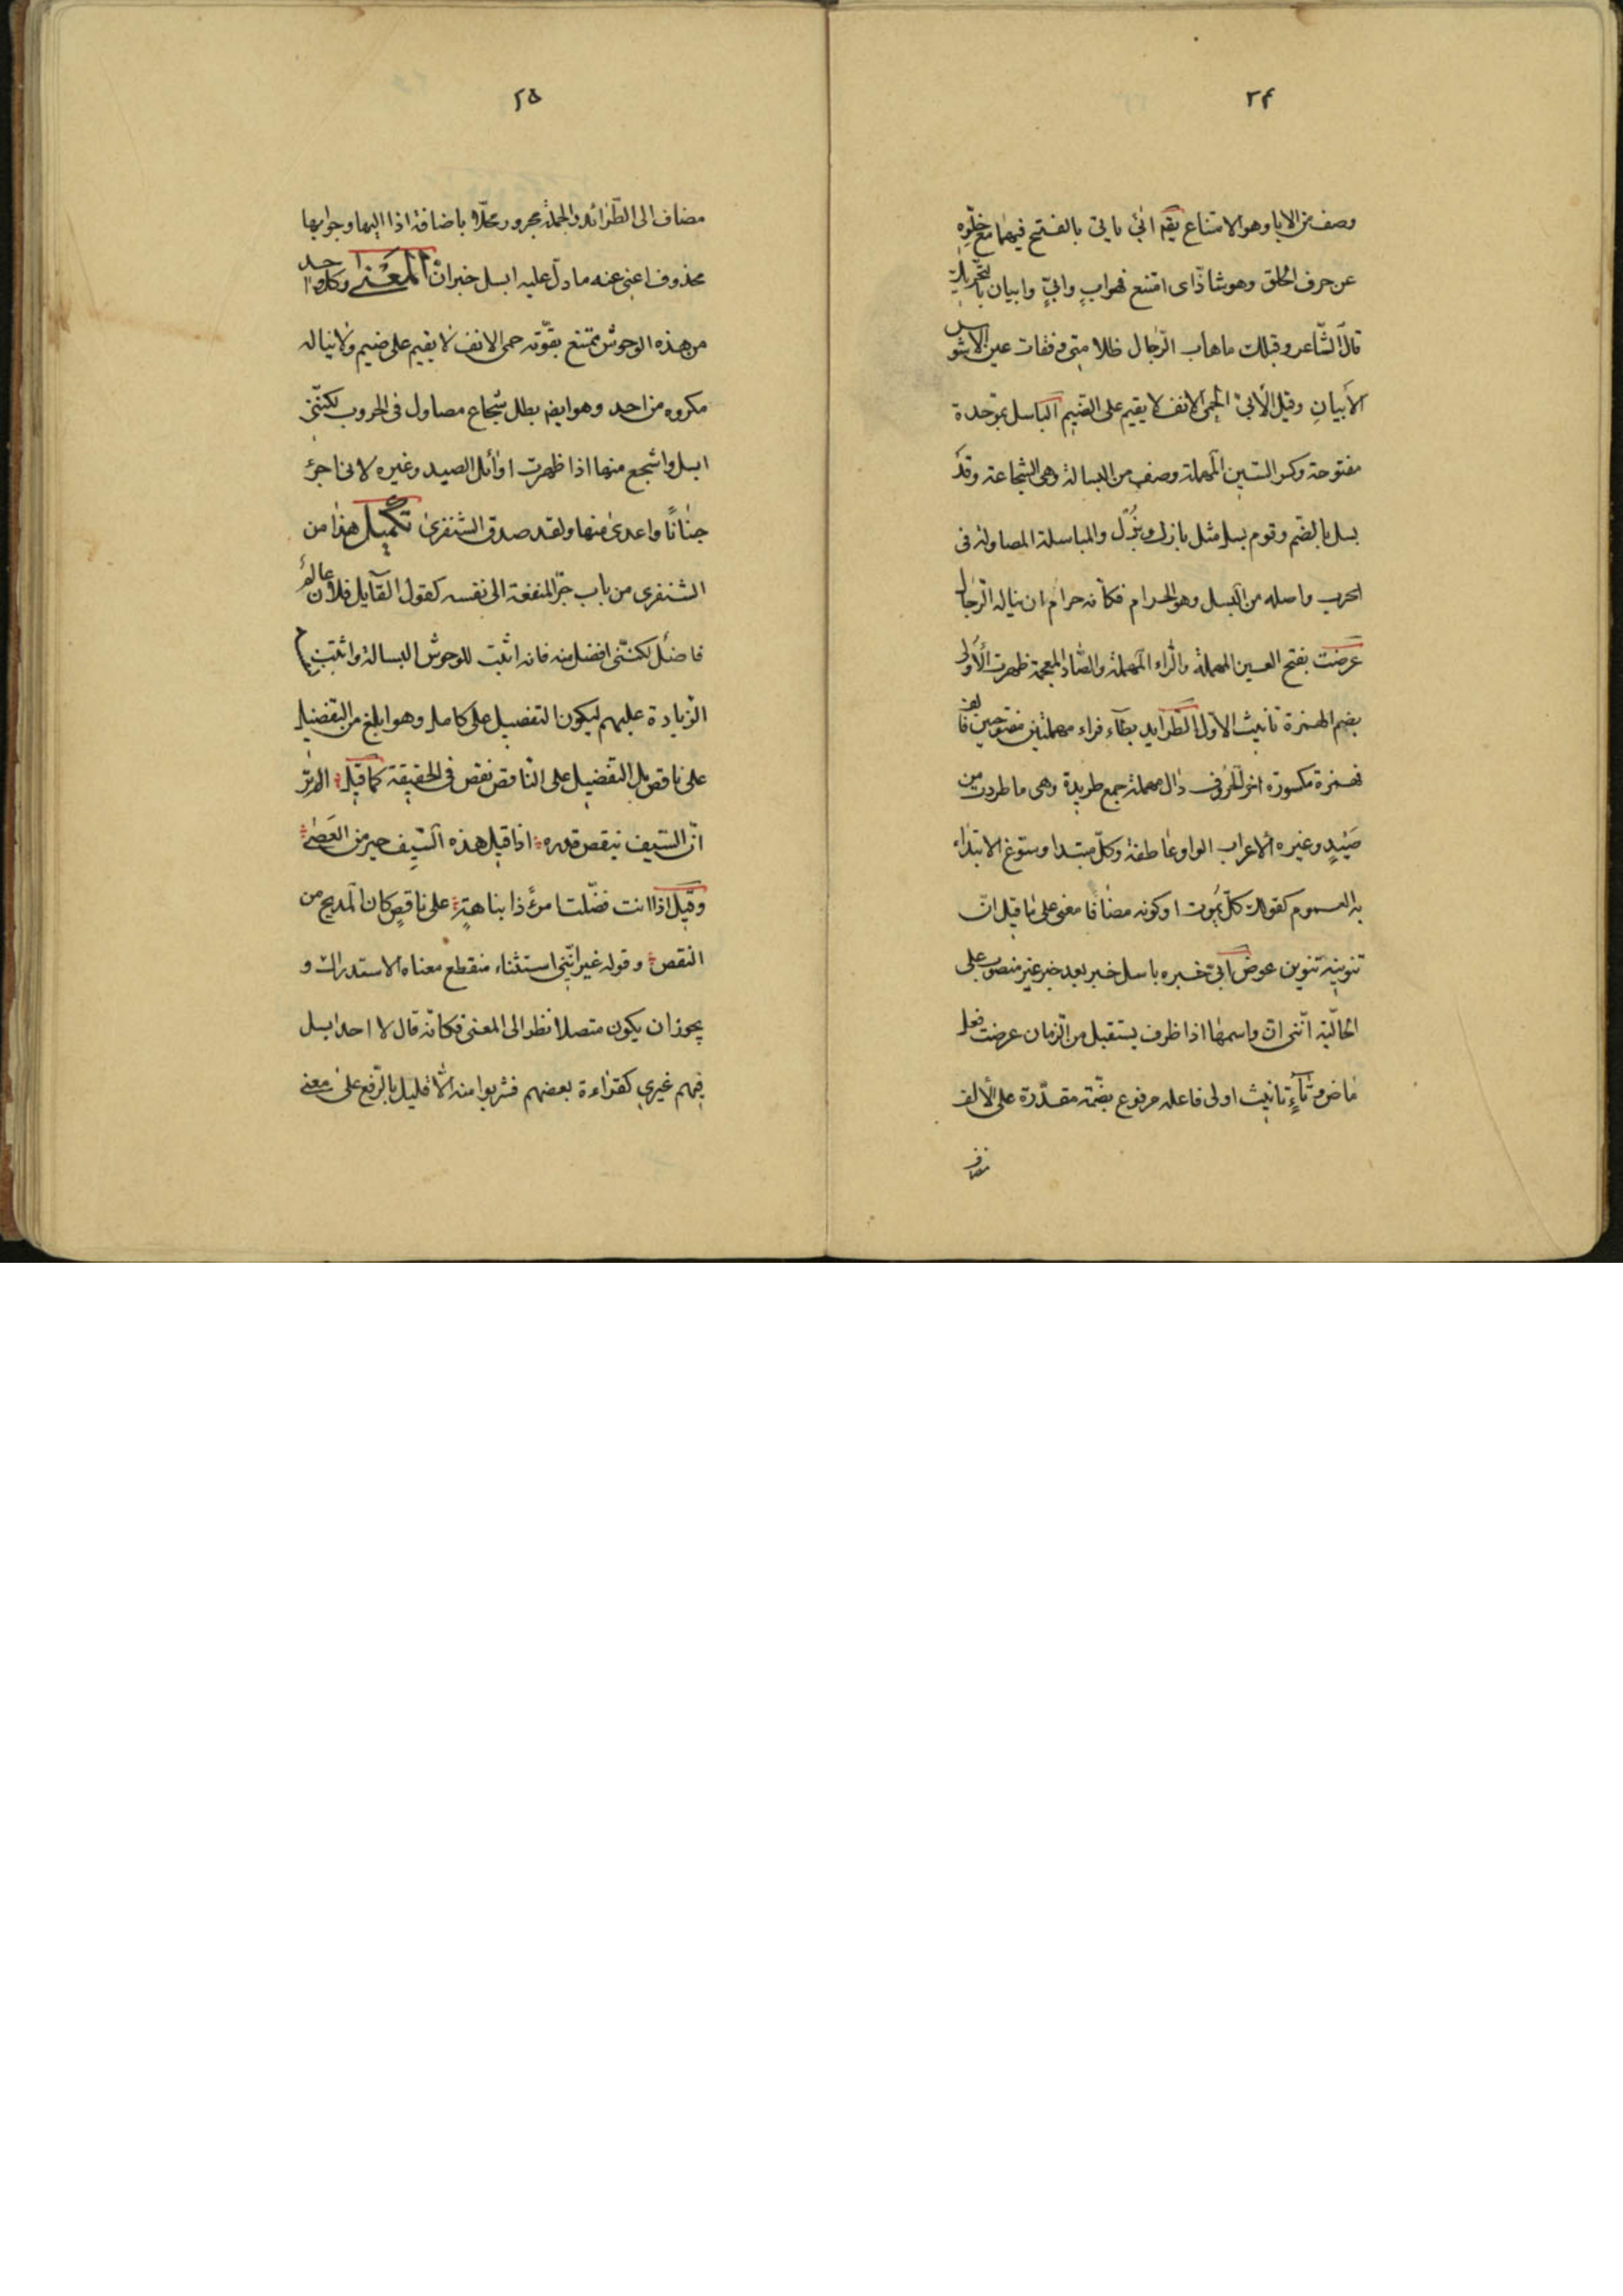 ٢۴
وصف من الابا وهو الامتناع يقم ابى يابى بالفتح فيهما مع خلوه
عن حرف الحلق وهو شاذ اى امتنع فهو ابٍ وابىٌّ وابيان بالتحريك
قال الشاعر وقبلك ما هاب الرّجال ظلامتى وفقات عين الاشوس
الأبيانِ وقيل الأبىّ الحمى الانف لا يقيم على الضيم الباسل بموحدة
مفتوحة وكسر السّين المهملة وصف من البسالة وهى الشجاعة وقد
بسل بالضّم وقوم بسل مثل بازل وبُزّل والمباسلة المصاولة فى
الحرب واصله من البسل وهو الحرام فكانّه حرام ان يناله الرّجال
عرضت بفتح العين المهملة والرّاء المهملة والضّاد المعجمة ظهرت الأولى
بضم الهمزة تانيث الاوّل الطّرايد بطآء فراء مهملتين مفتوحين فالف
فهمزة مكسورة اخر الحروف دال مهملة جمع طريدة وهى ما طردت من
صَيْدٍ وغيره الاعراب الواو عاطفة وكلّ مبتدا وسوّغ الابتداء
به العموم كقولك كلّ يموت او كونه مضافا معنى على ما قيل انّ
تنوينه تنوين عوض ابىّ خبره باسل خبر بعد خبر غير منصوب على
الحاليّة انّنى انّ واسمها اذا ظرف يستقبل من الزّمان عرضت فعل
ماض وتآءٍ تانيث اولى فاعله مرفوع بضمّة مقدّرة على الألف
مضاف
٢۵
مضاف الى الطّرائد والجملة مجرور محلّا باضافة اذا اليها وجوابها
محذوف اغنى عنه ما دلّ عليه ابسل خبر انّ المعنى وكل واحد
من هذه الوحوش ممتنع بقوّته حمى الانف لا يقيم على ضيم ولا يناله
مكروه من احد وهو ايضم بطل شجاع مصاول فى الحروب لكنّنى
ابسل واشجع منها اذا ظهرت اوائل الصيد وغيره لانى اجرء
جنانًا واعدى منها ولقد صدق الشنفرى تكميل هذا من
الشنفرى من باب جرّ المنفعة الى نفسه كقول القآيل فلان عالم
فاضل لكنّنى افضل منه فانه اثبت للوحوش البسالة واثبت
الزّيادة عليهم ليكون التفضيل على كامل وهو ابلغ من التفضيل
على ناقص بل التفضيل على النّاقص نقص فى الحقيقة كما قيل الم تر
انّ السّيف ينقص قدره اذا قيل هذه السّيف خير من العَصٰى
وقيل اذا انت فضّلت امرءً ذا نباهةٍ على ناقصٍ كان المديح من
النقص وقوله غير انّنى استثناء منقطع معناه الاستدراك و
يجوز ان يكون متصلا نظرا الى المعنى فكانّه قال لا احد ابسل
فيهم غيرى كقراءة بعضهم فشربوا منه الّا قليل بالرّفع على معنى